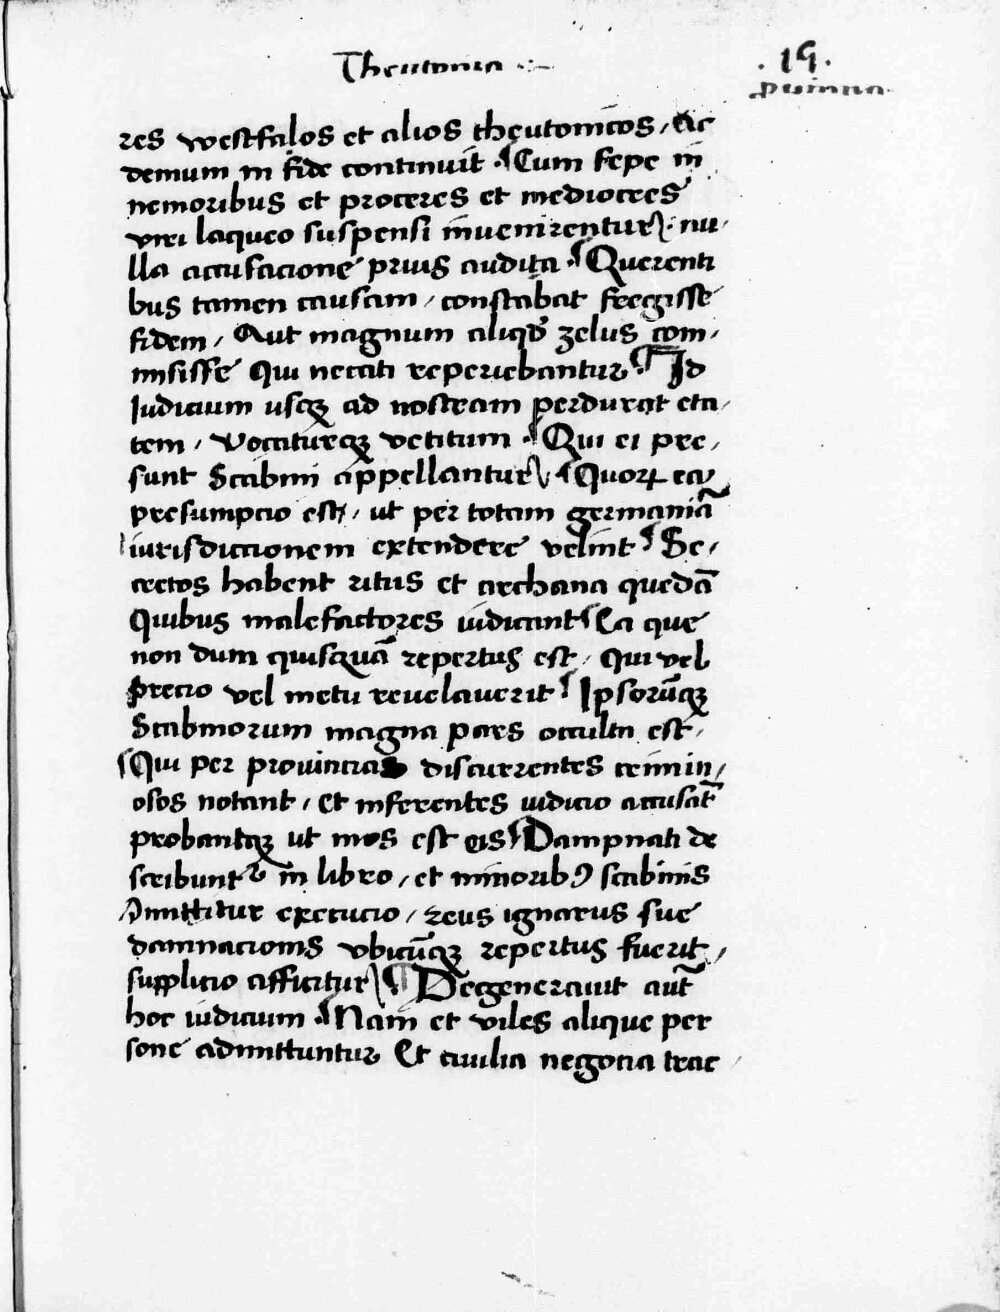 Theutonia
.19.
res westfalos et alios theutonicos, Ac
demum in fide continuit . Cum sepe in
nemoribus et proceres et mediocres
viri laqueo suspensi invenirentur . nu-
lla accusacione prius audita . Querenti
bus tamen causam, constabat fregisse
fidem, Aut magnum aliqd̕ zelus com-
misisse Qui necati reperiebantur . Id
Iudicium usqꝫ ad nostram perdurat eta-
tem, Vocaturqꝫ vetitum . Qui ei pre-
sunt Scabini appellantur Quoꝝ ea
presumpcio est, ut per totam germaniā
iurisdiccionem extendere velint Se-
cretos habent ritus et archana quedā
Quibus malefactores iudicant Ea que
non dum quisquā repertus est, Qui vel
precio vel metu revelaverit Ipsorūqꝫ
Scabinorum magna pars occulta est,
Qui per provincias discurrentes crimin-
osos notant, Et inferentes iudicio accusāt
probantqꝫ ut mos est eis Dampnati de
scribuntᷣ in libro, et minoribꝰ scabinis
ꝯmittitur execucio, reus ignarus sue
damnacionis vbicūqꝫ repertus fuerit,
supplicio afficitur Degeneravit aūt
hoc iudicium . Nam et viles alique per
sone admittuntur Et civilia negocia trac